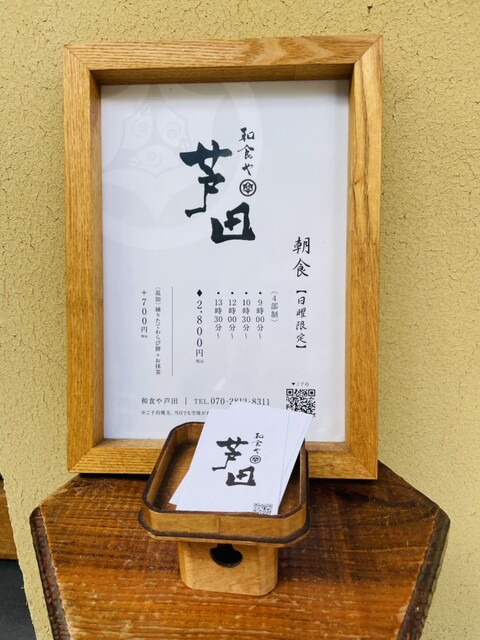 和食や
芦田
朝食【日曜限定】
（4部制）
・9時00分〜
・10時30分〜
・12時00分〜
・13時30分〜
◆2,800円 税込
（追加）練りたてわらび餅+お抹茶
+700円 税込
▼ご予約
和食や芦田 | TEL.070-2812-8311
和食や
芦田